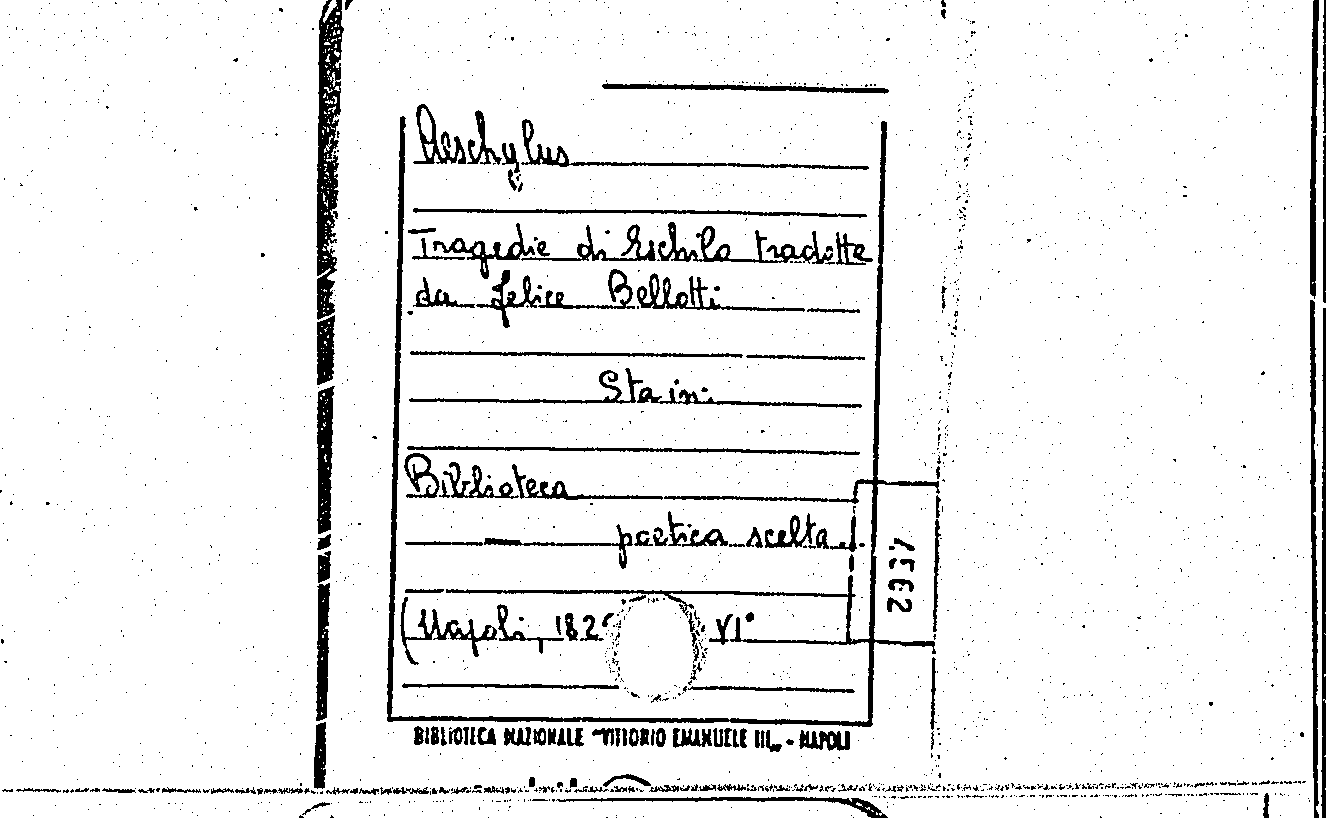 Aeschylus
Tragedie di Eschilo tradotte
da Felice Bellotti
Sta in:
Biblioteca
— poetica scelta.
(Napoli, 182 VI°
4562
BIBLIOTECA NAZIONALE "VITTORIO EMANUELE III„ - NAPOLI